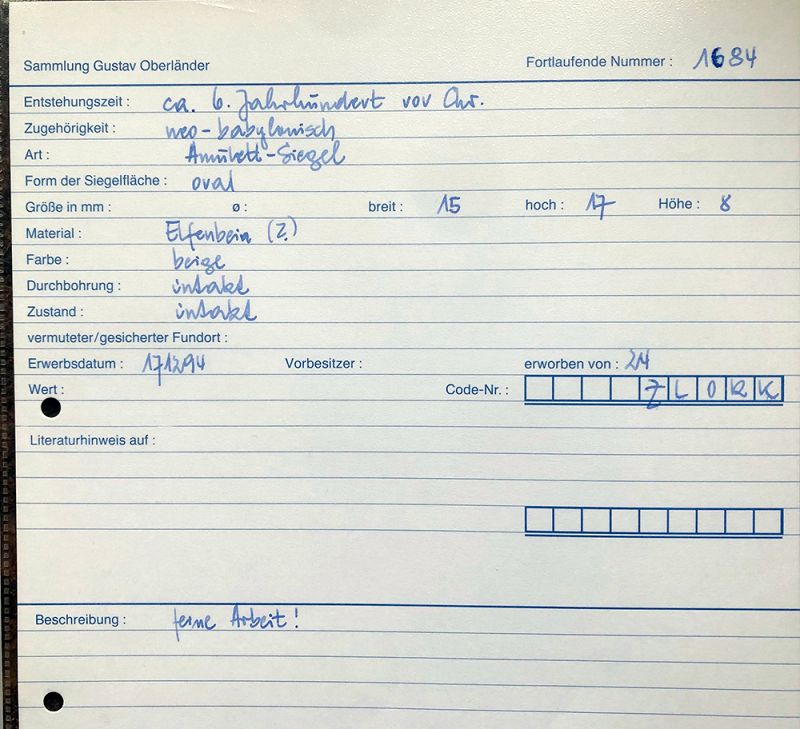 Sammlung Gustav Oberländer Fortlaufende Nummer : 1684
Entstehungszeit : ca. 6. Jahrhundert vor Chr.
Zugehörigkeit : neo-babylonisch
Art : Amulett-Siegel
Form der Siegelfläche : oval
Größe in mm : ø : breit : 15 hoch : 17 Höhe : 8
Material : Elfenbein (?)
Farbe : beige
Durchbohrung : intakt
Zustand : intakt
vermuteter/gesicherter Fundort :
Erwerbsdatum : 171294 Vorbesitzer : erworben von : 24
Wert : Code-Nr. : Z L O R K
Literaturhinweis auf :
Beschreibung : feine Arbeit !